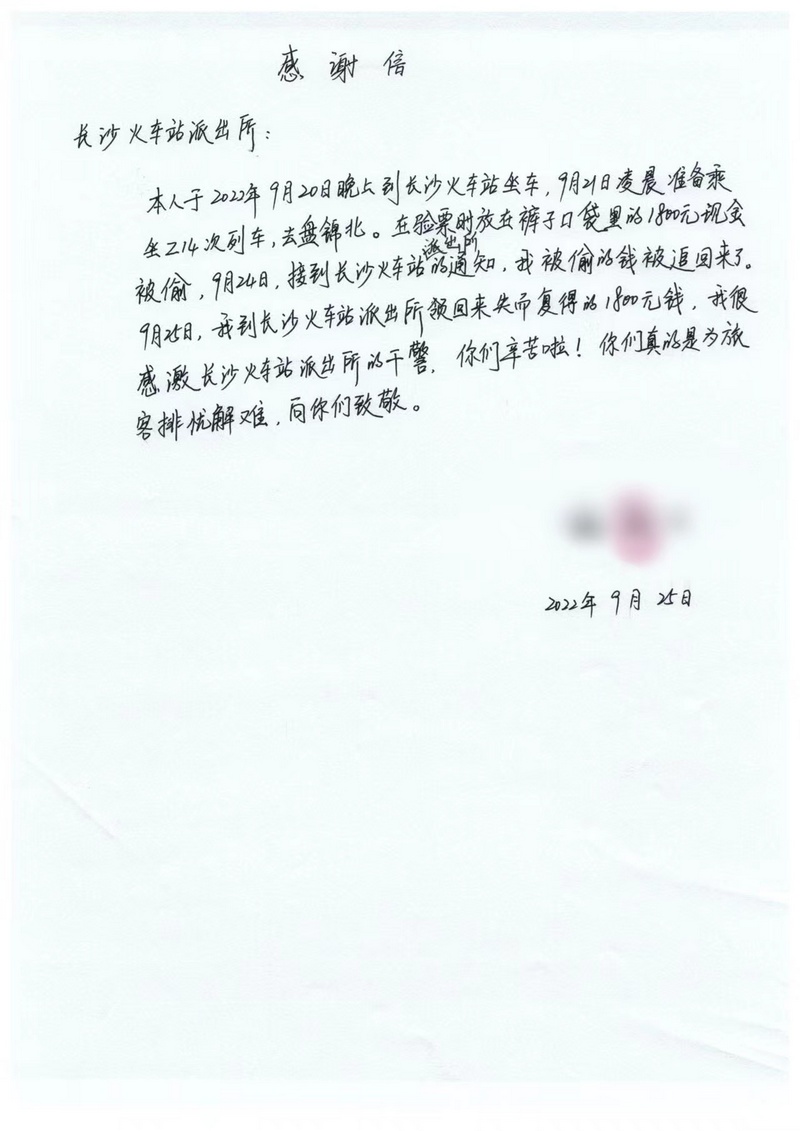 感谢信
长沙火车站派出所:
本人于2022年9月20日晚上到长沙火车站坐车,9月21日凌晨准备乘
坐Z14次列车,去盘锦北。在验票时放在裤子口袋里的1800元现金
被偷,9月24日,接到长沙火车站派出所的通知,我被偷的钱被追回来了。
9月25日,我到长沙火车站派出所领回来失而复得的1800元钱,我很
感激长沙火车站派出所的干警,你们辛苦啦!你们真的是为旅
客排忧解难,向你们致敬。
2022年9月25日